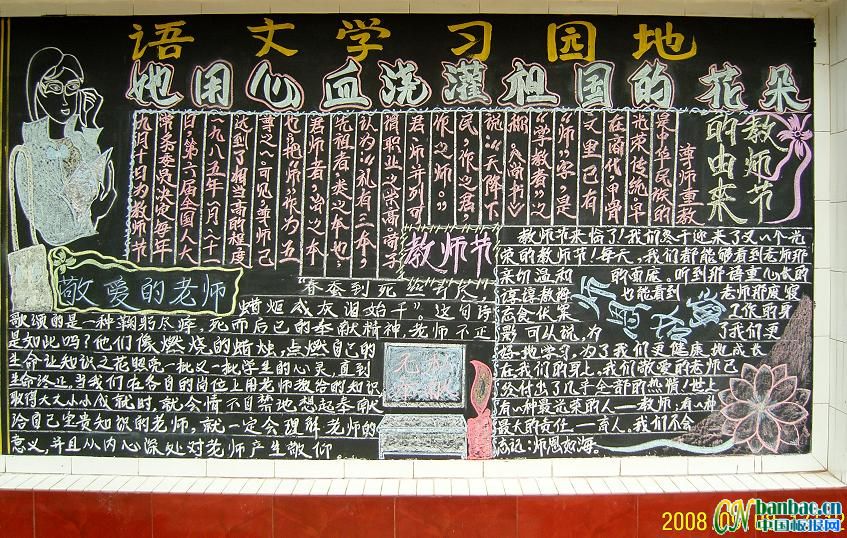 语文学习园地
她用心血浇灌祖国的花朵
教师节
的由来
尊师重教
是中华民族的
光荣传统,早
在商代,甲骨
文里已有
“师”字,是
“学教者”之
称。《尚书》
说:“天降下
民,作之君,
作之师。”
君师并列可
谓职业之崇高。荀子
认为:“礼有三本,
先祖者,类之本也;
君师者,治之本
也,把“师”作为五
等之一。可见,尊师已
达到了相当高的程度
一九八五年一月二十一
日,第六届全国人大
常务委员决定每年
九月十日为教师节
敬爱的老师
“春蚕到死丝方尽,
蜡炬成灰泪始干”,这句诗
歌颂的是一种鞠躬尽瘁,死而后已的奉献精神,老师不正
是如此吗?他们像燃烧的蜡烛,点燃自己的
生命让知识之花照亮一批又一批学生的心灵,直到
生命终止,当我们在各自的岗位上用老师教给的知识
取得大大小小成就时,就会情不自禁地想起奉献
给自己宝贵知识的老师,就一定会理解老师的
意义,并且从内心深处对老师产生敬仰
教师节
教师节来临了!我们终于迎来了又一个光
荣的教师节!每天,我们都能够看到老师那
亲切温和的面庞。听到那语重心长的
谆谆教诲 也能看到 老师那废寝
忘食伏案 工作的身
影 可以说,为了我们更
好地学习,为了我们更健康地成长
在我们的身上,我们敬爱的老师已
经付出了几乎全部的热情!世上
有一种最光荣的人——教师;有一种
最大的责任——育人,我们不会
忘记:师恩如海。
无私
奉献
2008
banbao.cn
中国板报网